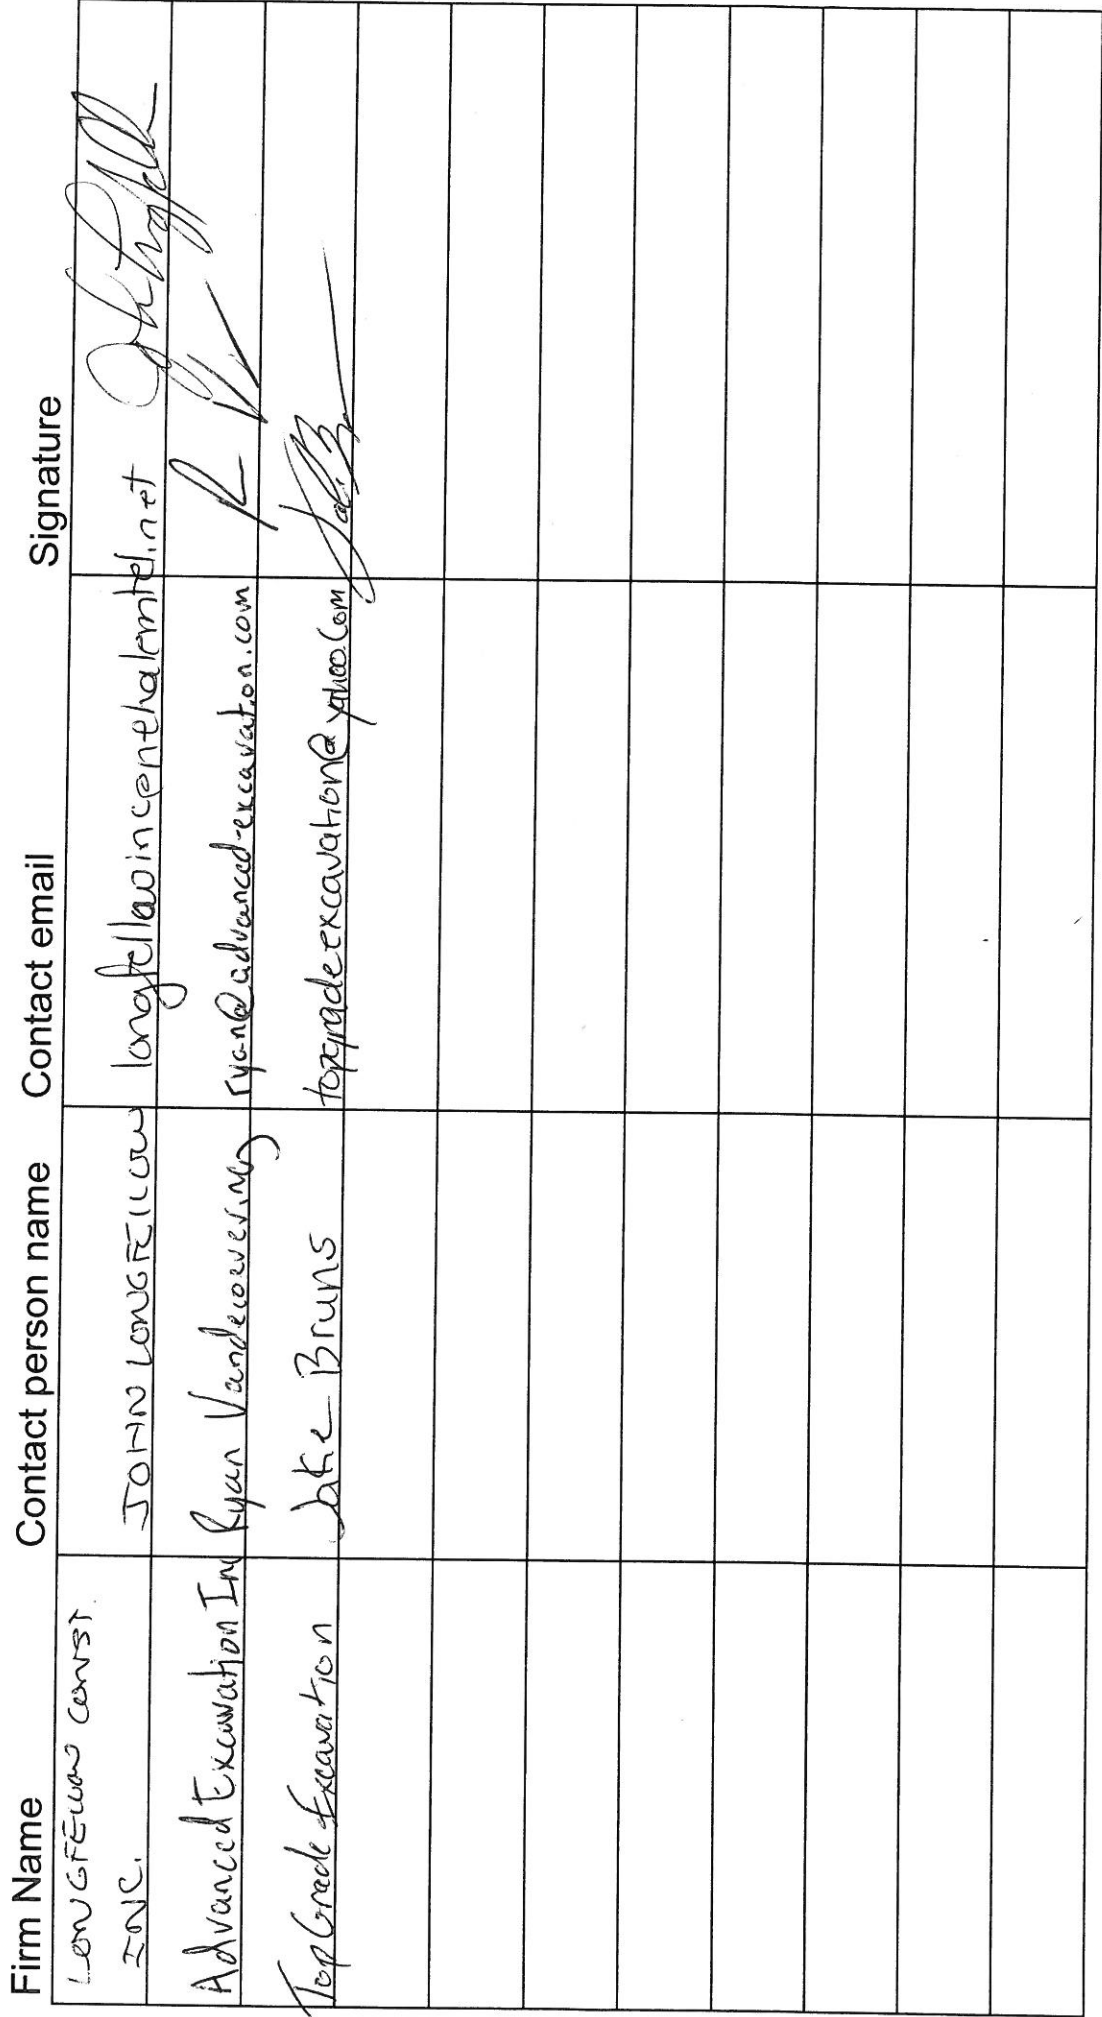 Firm Name Contact person name Contact email Signature
LONGFELLOW CONST.
INC. JOHN LONGFELLOW
Advanced Excavation Inc Ryan ryan@advanced-excavation.com
Top Grade Excavation Jake Bruns topgradeexcavation@yahoo.com